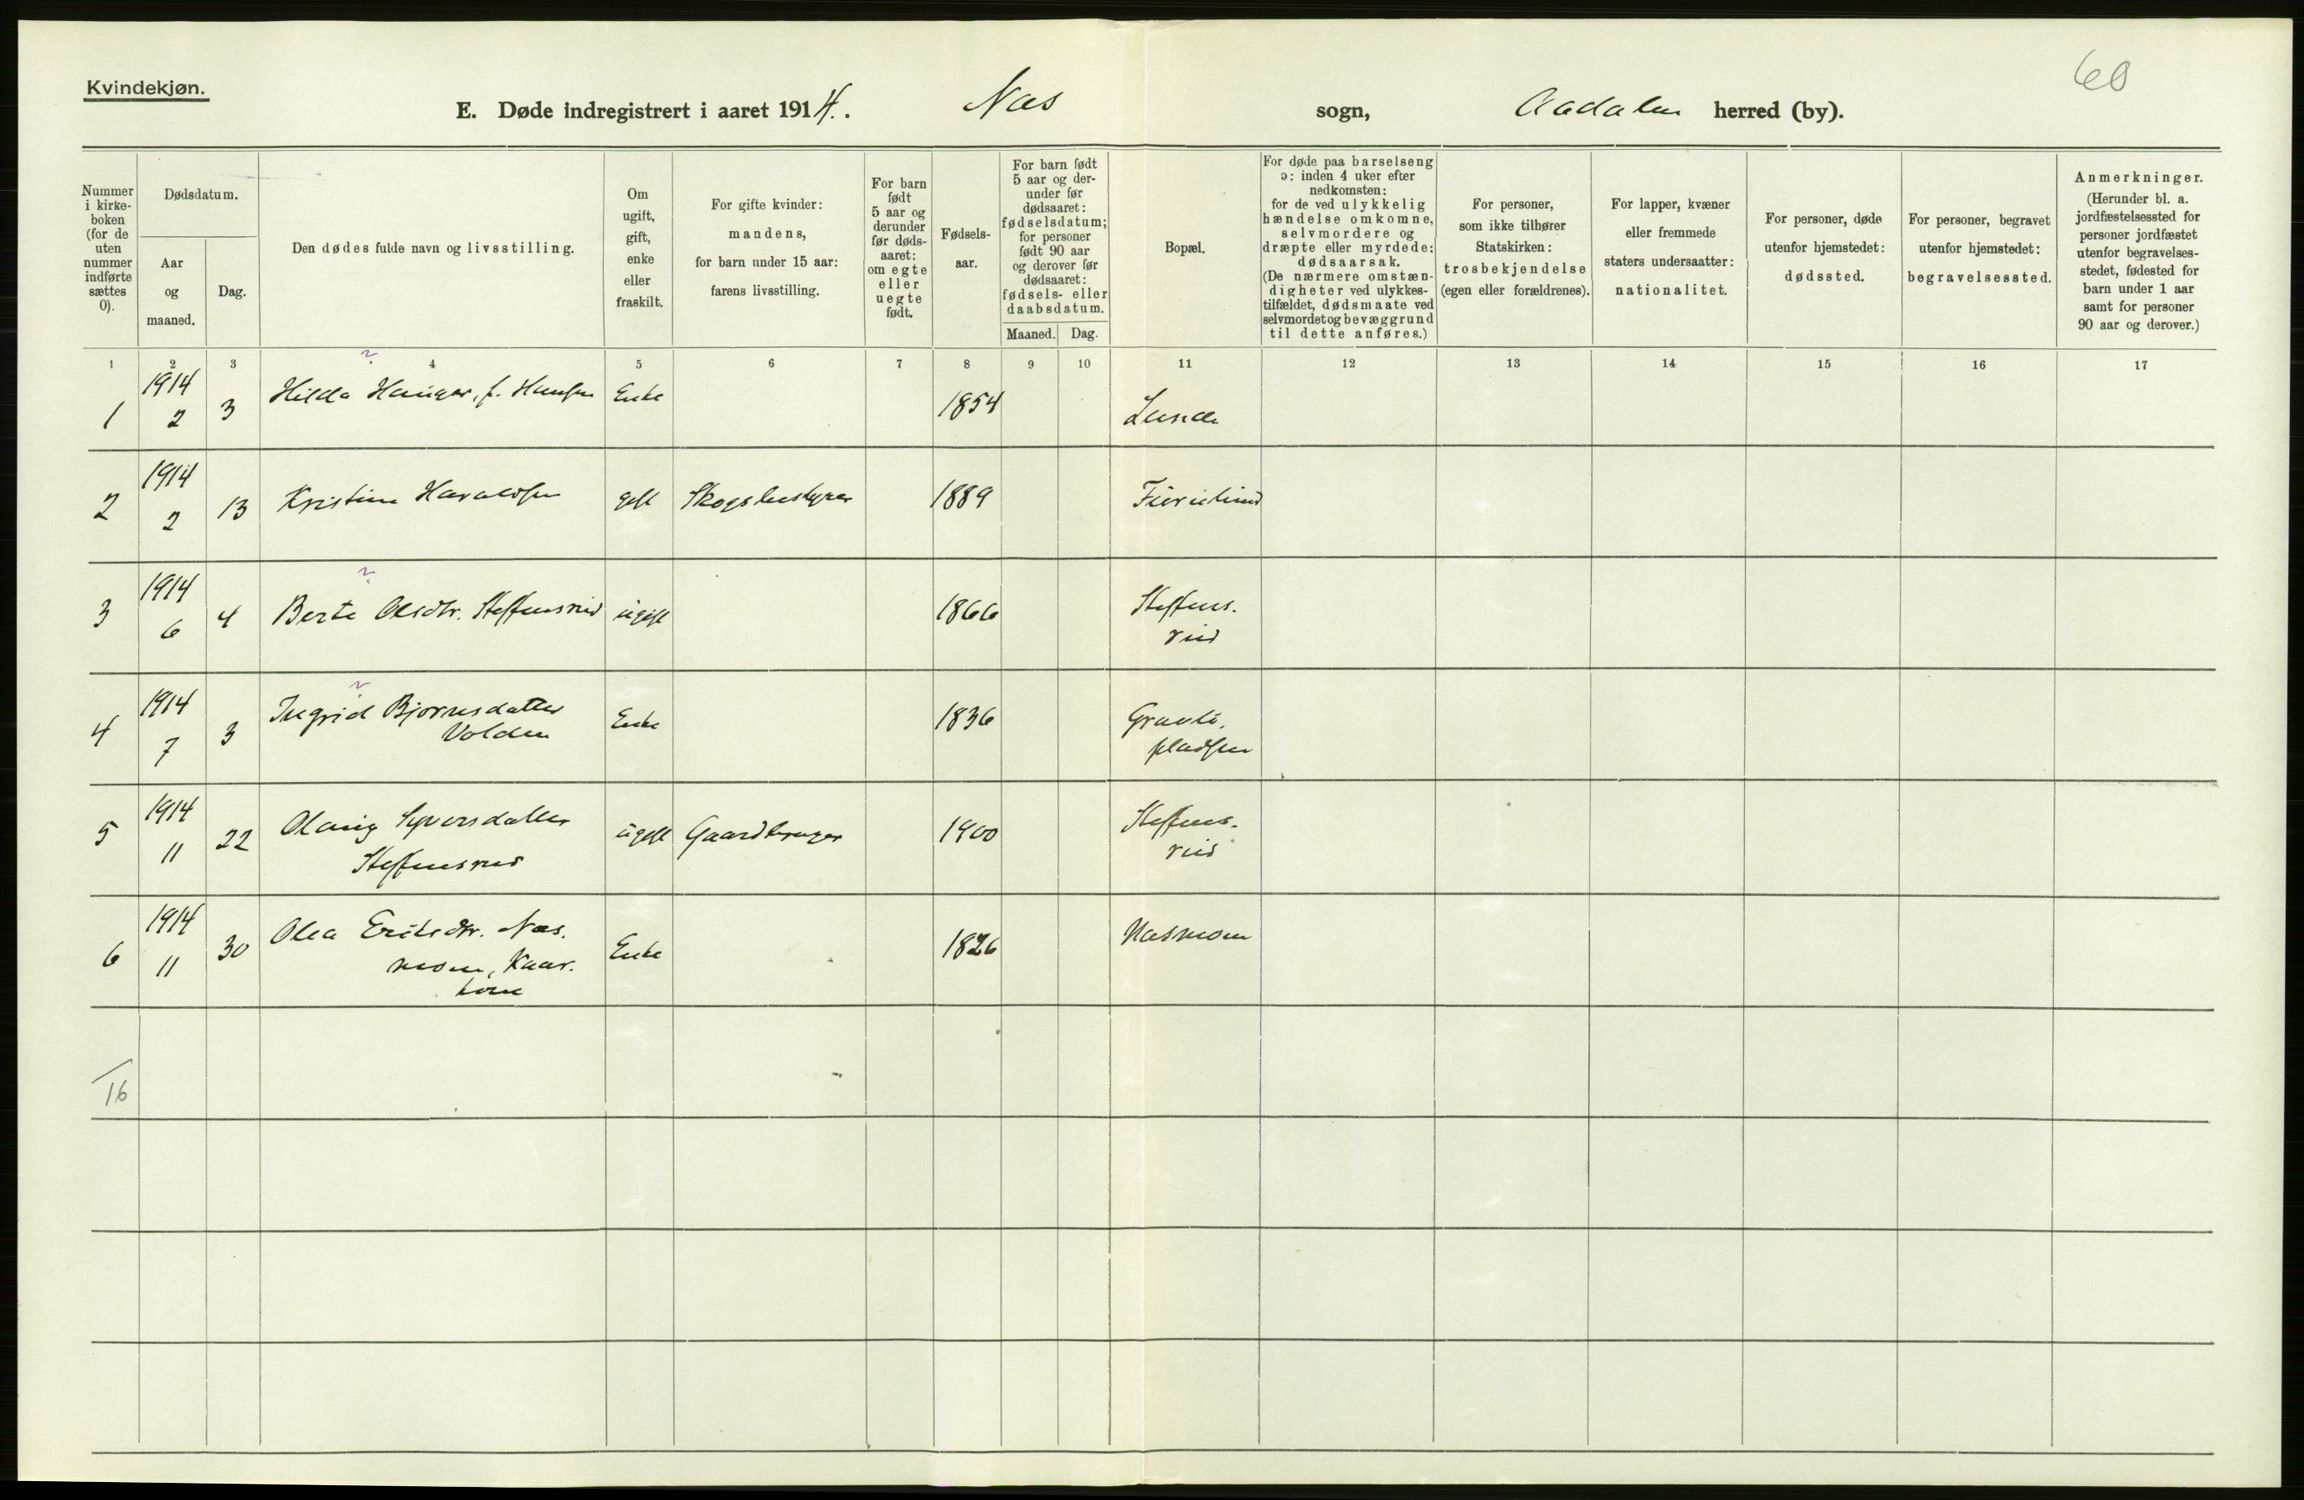 Kvindekjøn.
60
E. Døde indregistrert i aaret 1914. Nes sogn, Aadalen herred (by).
Nummer i kirke-boken (for de uten nummer indførte sættes 0).
Dødsdatum.
Aar og maaned.
Dag.
Den dødes fulde navn og livsstilling.
Om ugift, gift, enke eller fraskilt.
For gifte kvinder: mandens, for barn under 15 aar: farens livsstilling.
For barn født 5 aar og derunder før døds-aaret: om egte eller uegte født.
Fødsels-aar.
For barn født 5 aar og der-under før dødsaaret: fødselsdatum; for personer født 90 aar og derover før dødsaaret: fødsels- eller daabsdatum.
Maaned. Dag.
Bopæl.
For døde paa barselseng ɔ: inden 4 uker efter nedkomsten: for de ved ulykkelig hændelse omkomne, selvmordere og dræpte eller myrdede: dødsaarsak. (De nærmere omstæn-digheter ved ulykkes-tilfældet, dødsmaate ved selvmordet og bevæggrund til dette anføres.)
For personer, som ikke tilhører Statskirken: trosbekjendelse (egen eller forældrenes).
For lapper, kvæner eller fremmede staters undersaatter: nationalitet.
For personer, døde utenfor hjemstedet: dødssted.
For personer, begravet utenfor hjemstedet: begravelsessted.
Anmerkninger. (Herunder bl. a. jordfæstelsessted for personer jordfæstet utenfor begravelses-stedet, fødested for barn under 1 aar samt for personer 90 aar og derover.)
1 2 3 4 5 6 7 8 9 10 11 12 13 14 15 16 17
1 1914 2 3 Hilda Hauger, f. Hansen Enke 1854 Lunde
2 1914 2 13 Kristine Haraldsen gift Skogsbestyrer 1889 Furulund
3 1914 6 4 Berte Olsdtr. Steffensrud ugift 1866 Steffens-
rud
4 1914 7 3 Ingrid Bjørnsdatter Enke 1836
Volden pladsen
5 1914 11 22 Olaug Syversdatter ugift Gaardbruger 1900 Steffens-
Steffensrud rud
6 1914 11 30 Olea Eriksdtr. Nes- Enke 1826 Nesmoen
moen, Kaar-
kone
16